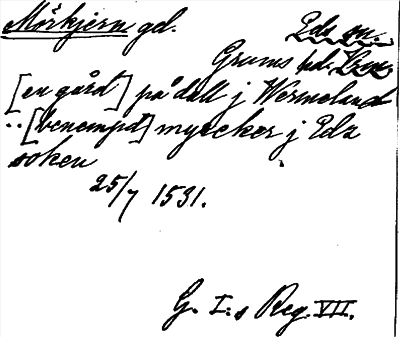 Mörkjern gd. Eds sn.
Grums hd. Vrml.
[en gård] på dall j Wermeland
..[benempd] myrcker j Edz
soken
25/7 1531.
G. I:s Reg. VII.